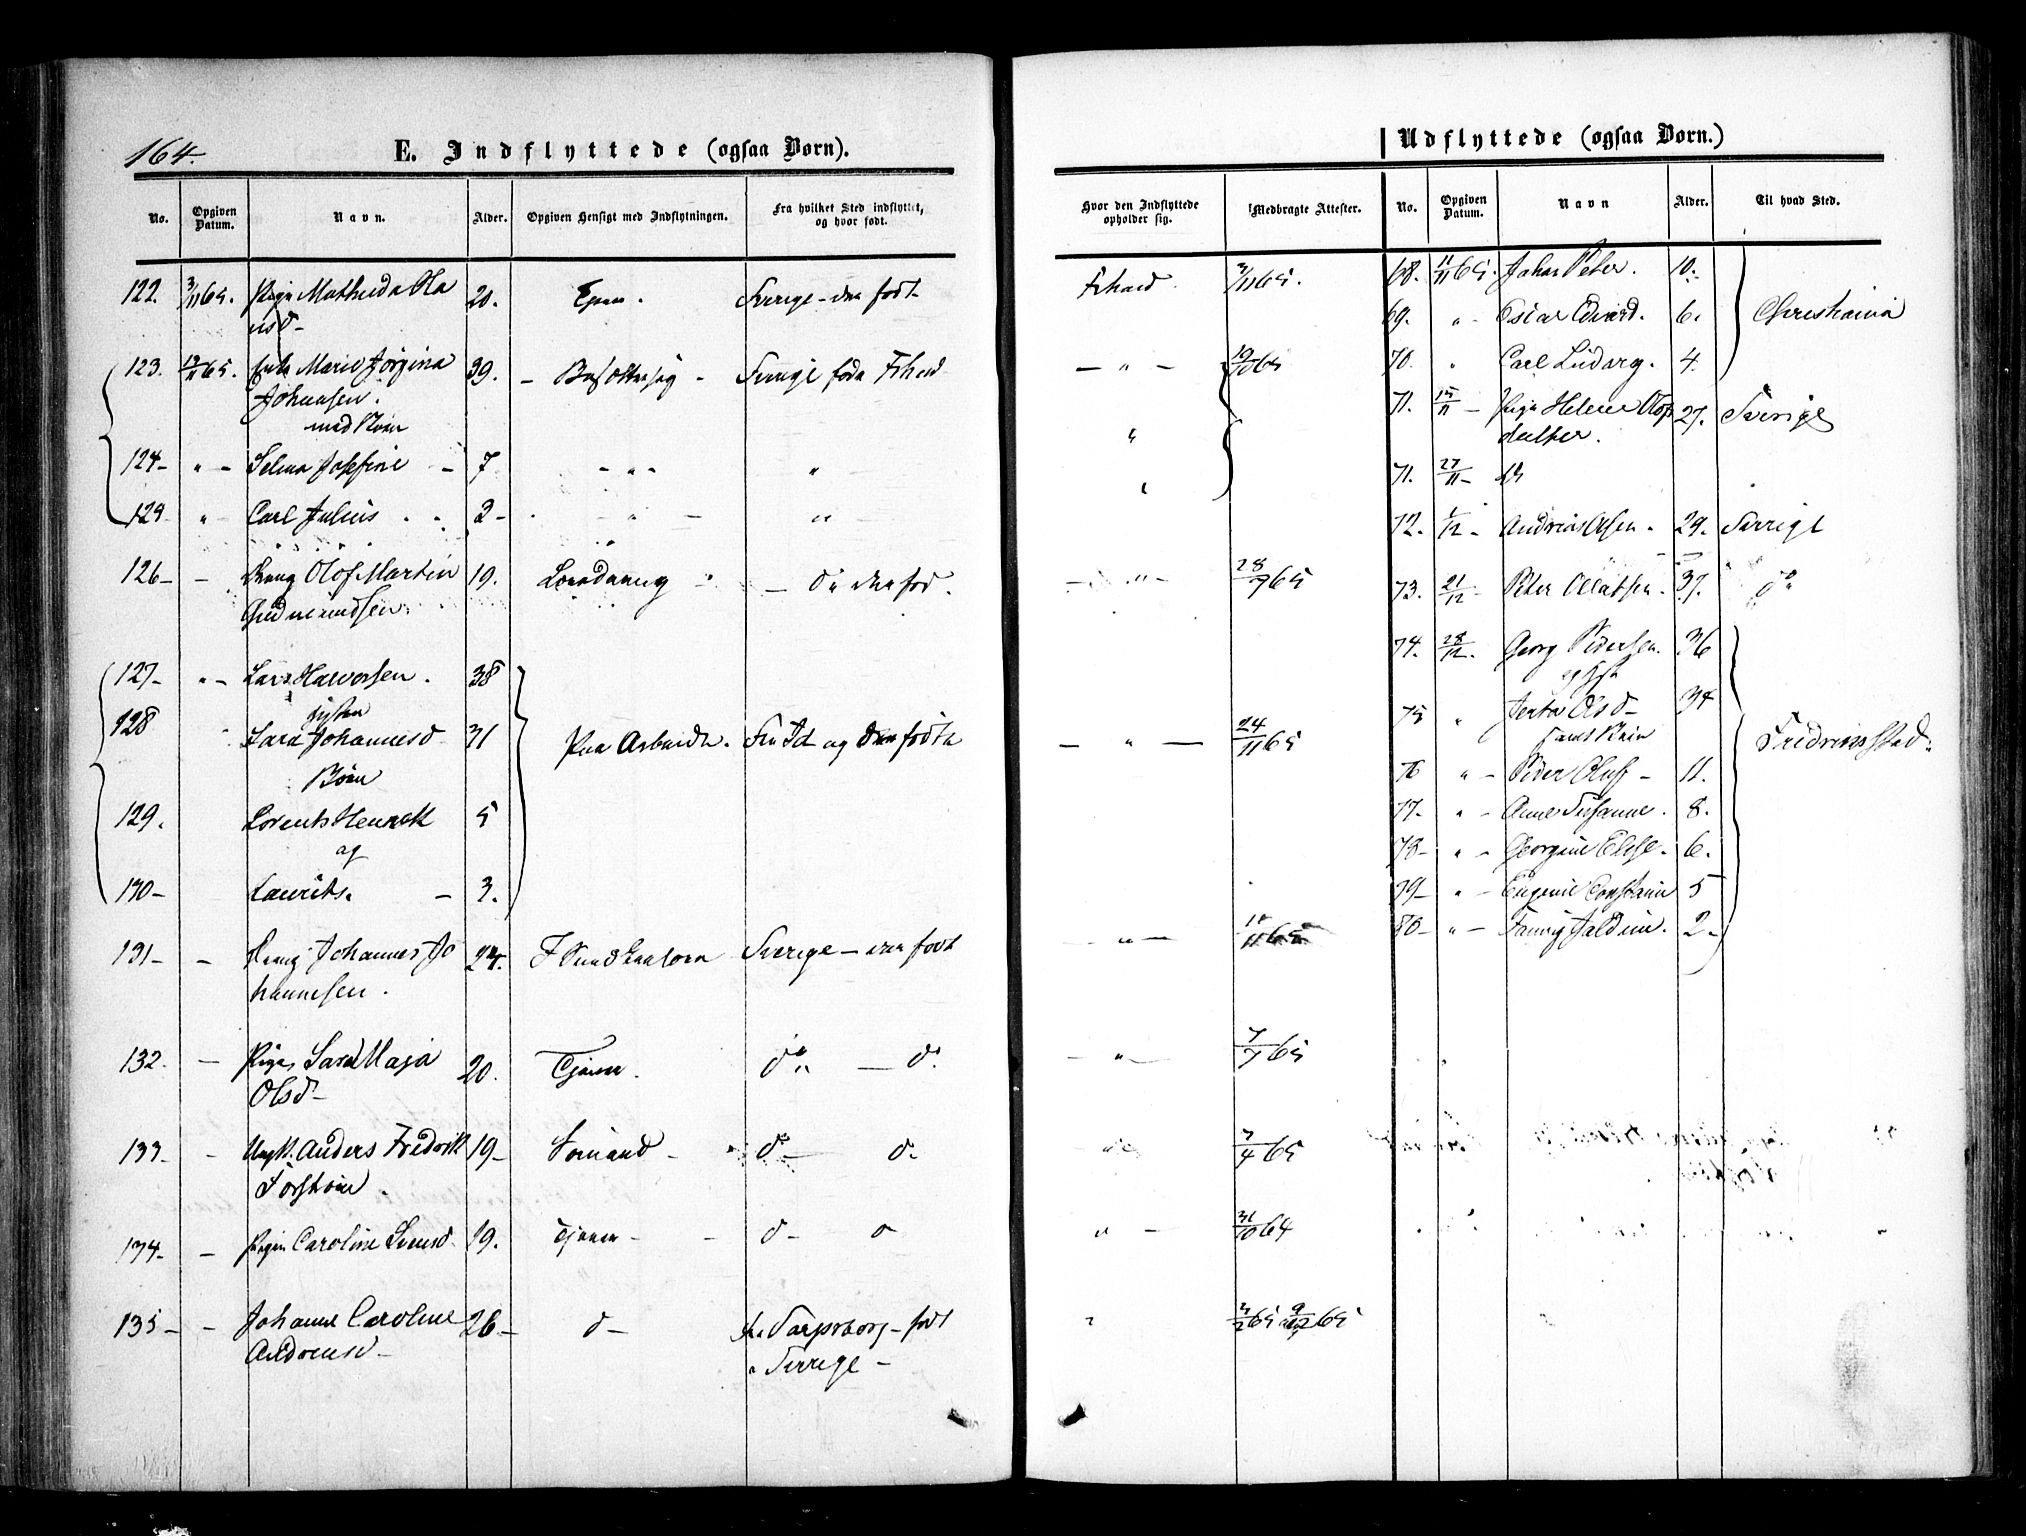 164.
E. Indflyttede (ogsaa Børn).
No. Opgiven Datum. Navn. Alder. Opgiven Hensigt med Indflytningen. Fra hvilket Sted indflyttet, og hvor født.
122. 3/11 65. Pige Mathilda Ha 20. Sverige - der født
nsd -
123. 65. Enke Marie Jørgina 39. - Besøttelse - Sverige føde Frhald
Johansen.
med Børn
124 - " - Selma Josefine - 7 - " - "
125 " Carl Julius 2 - - " - "
126 - - Dreng Olof Martin 19. Losedreng - do der fød.
Gudmundsen.
127 - " - Lars Halvorsen. 38
128 Hustru
" Lara Johannesd 31 Paa Arbeide. Fra Id og der fødte
Børn
129. Lorents Henrek 5
og
130 - Laurits. - 3.
131 - - Dreng Johannes Jo 24. Sverige - der født
hannesen.
132. - Pige Sara Maja 20. Tjene. do - do
Olsd -
133 - - Ungk. Anders Fredrik 19 - Sømand - do - do
134 - - Pigen Caroline Svensd 19. Tjene - - do - do
135 - - Johanne Caroline 26 - do - fra Sarpsborg - født
Andreasd - i Sverige -
Udflyttede (ogsaa Børn.)
Hvor den Indflyttede opholder sig. Medbragte Attester. No. Opgiven Datum. Navn Alder. Til hvad Sted.
Frhald 3/11 65. 68. 11/11 65. Johan Peter. 10.
69. " Oscar Edvard. 6. Christiania
- " - 65 70. " Carl Ludvig. 4.
71. 15/11 - Pige Helene Olofs 27. Sverige
" datter.
71. 27/11 -
"
72. 1/12 - Andreas Olsen - 29. Sverige
- " - 28/7 65 73. 21/12 - Peter 37. do
74. 28/12. Georg Pedersen. 36
og Hst
75 " Olsd - 34
samt Børn
- " - 24/11 65 76 " - Peder Oluf - 11. Fredrikstad.
77. " - Anne Susanne. 8.
78 - " - Georgine Elise. 6.
79 - " - Eugenie Constanse 5
- " - 80 - " - Fanny 2 -
- " - 7/7 65
" 7/4 65
" - 31/10 64
" 65 9/12 65